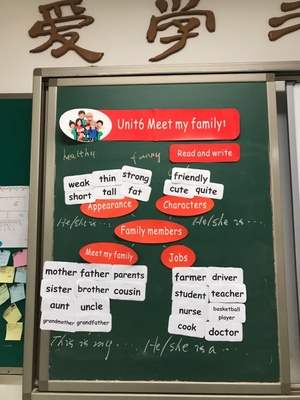 爱学习
Unit6 Meet my family!
Read and write
healthy funny
weak thin strong
short tall fat
friendly
cute quite
Appearance Characters
He/she is... He/she is...
Family members
Meet my family Jobs
mother father parents
sister brother cousin
aunt uncle
grandmother grandfather
farmer driver
student teacher
nurse basketball player
cook doctor
This is my... He/she is a...